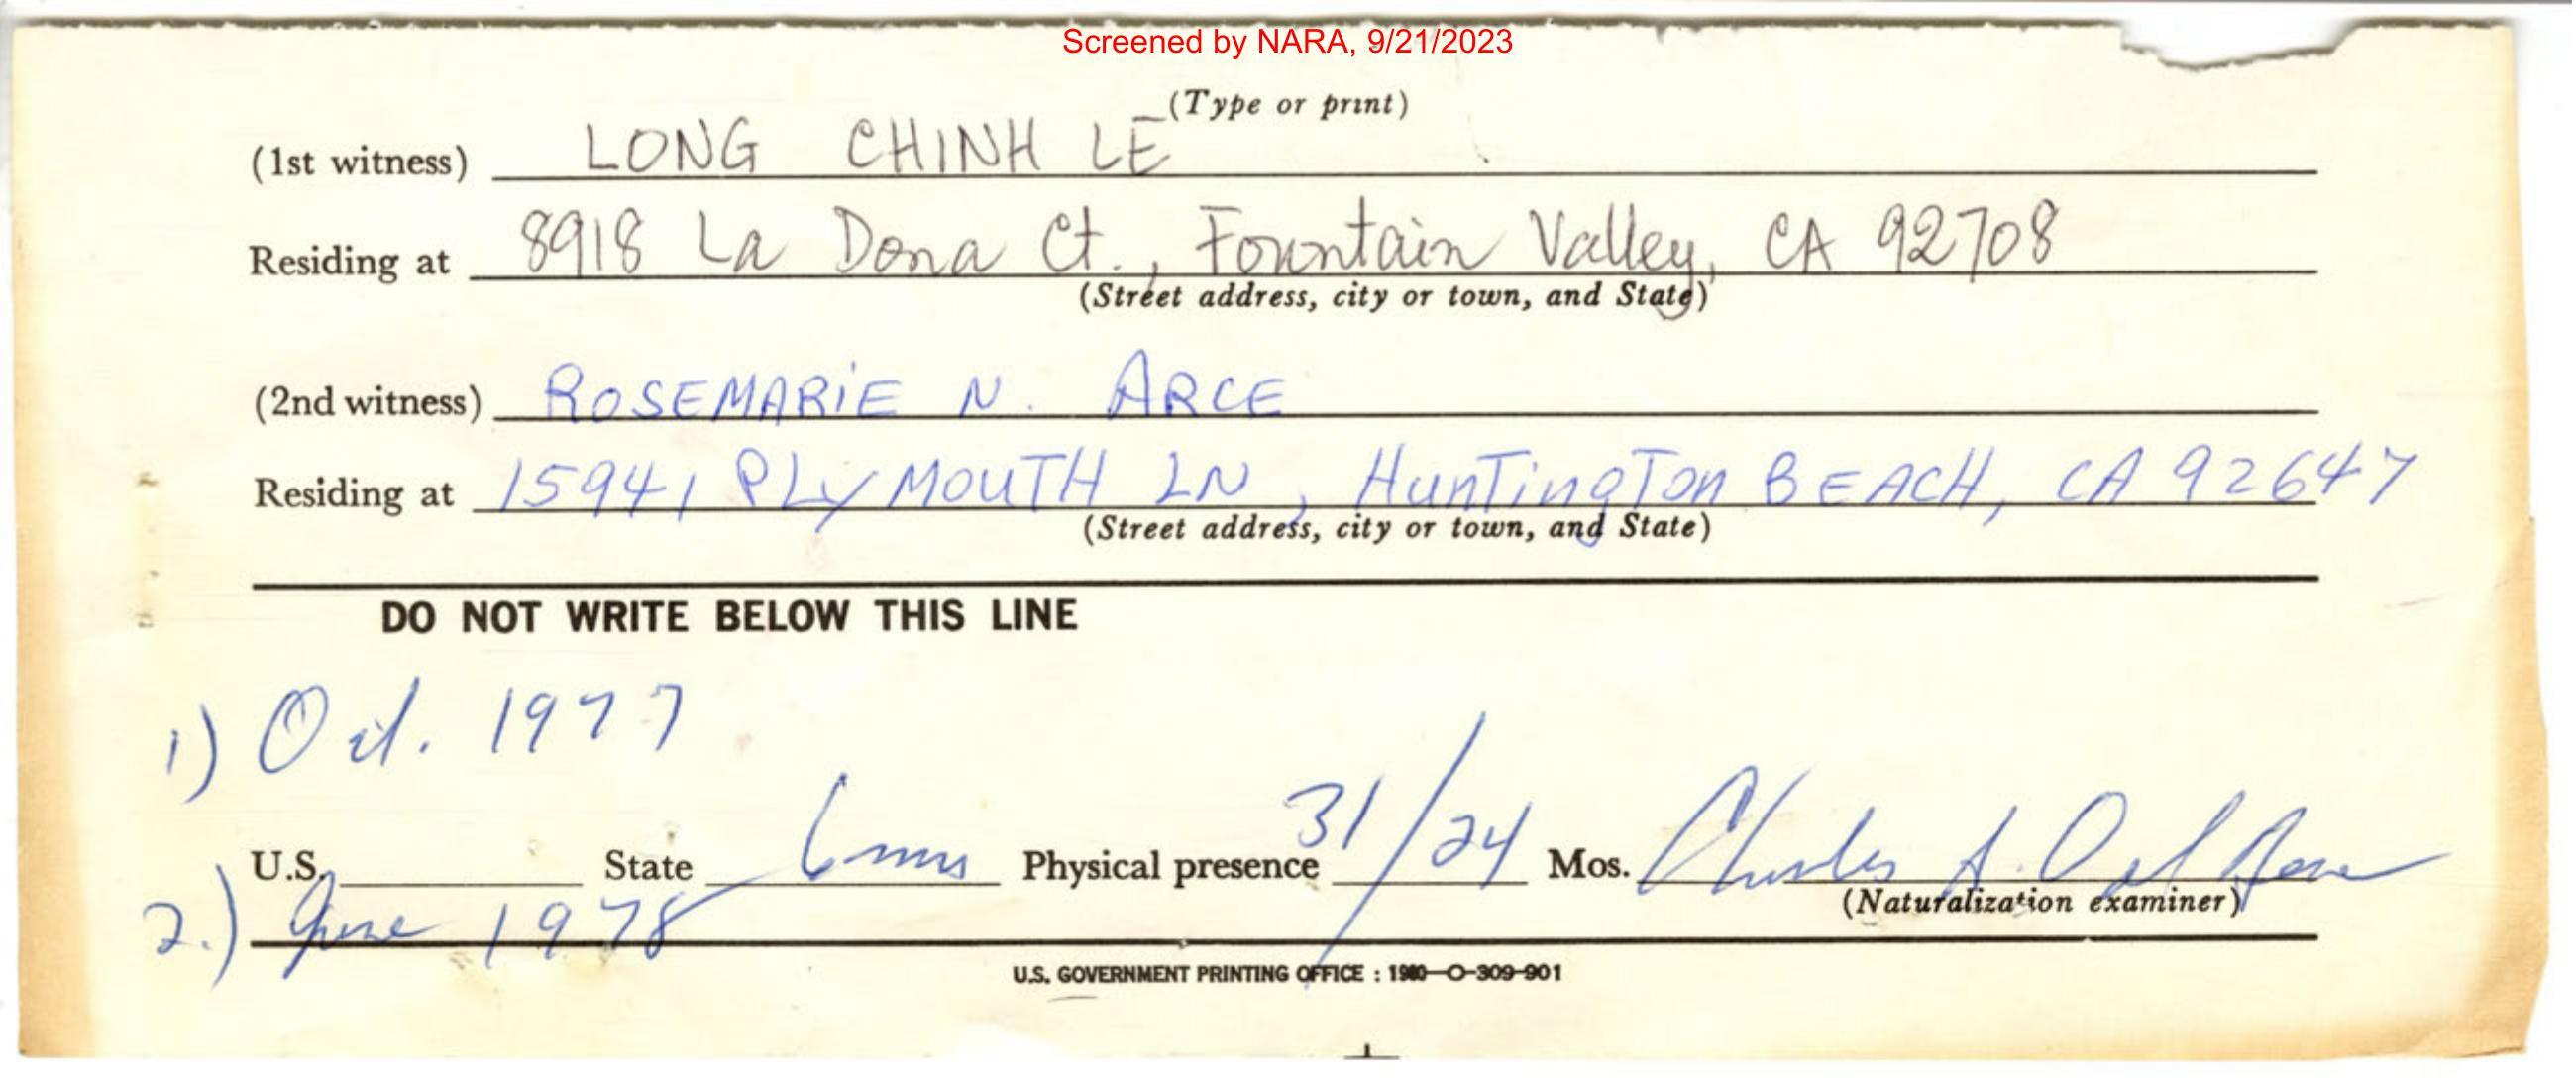 Screened by NARA, 9/21/2023
(Type or print)
(1st witness) LONG CHINH LE
Residing at 8918 La Dona Ct., Fountain Valley, CA 92708
(Street address, city or town, and State)
(2nd witness) ROSEMARIE N. ARCE
Residing at 15941 PLYMOUTH LN, HUNTINGTON BEACH, CA 92647
(Street address, city or town, and State)
DO NOT WRITE BELOW THIS LINE
1) Oct. 1977
U.S. State 6 mos Physical presence 31/24 Mos. Charles A.
(Naturalization examiner)
2.) June 1978
U.S. GOVERNMENT PRINTING OFFICE : 1980-O-309-901